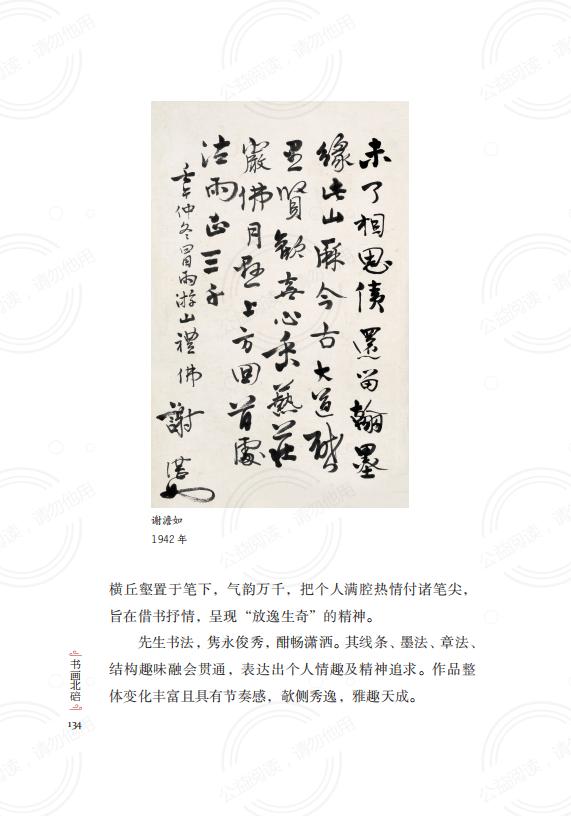 未了相思債還留翰墨
緣此山歷今古大道
賢歡喜心香爇莊
嚴佛月懸上方回首處
法雨三千
壬午仲冬冒雨游山禮佛
謝
谢澹如
1942 年
横丘壑置于笔下，气韵万千，把个人满腔热情付诸笔尖，
旨在借书抒情，呈现“放逸生奇”的精神。
先生书法，隽永俊秀，酣畅潇洒。其线条、墨法、章法、
结构趣味融会贯通，表达出个人情趣及精神追求。作品整
体变化丰富且具有节奏感，欹侧秀逸，雅趣天成。
书画北碚
134
公益阅读，请勿他用